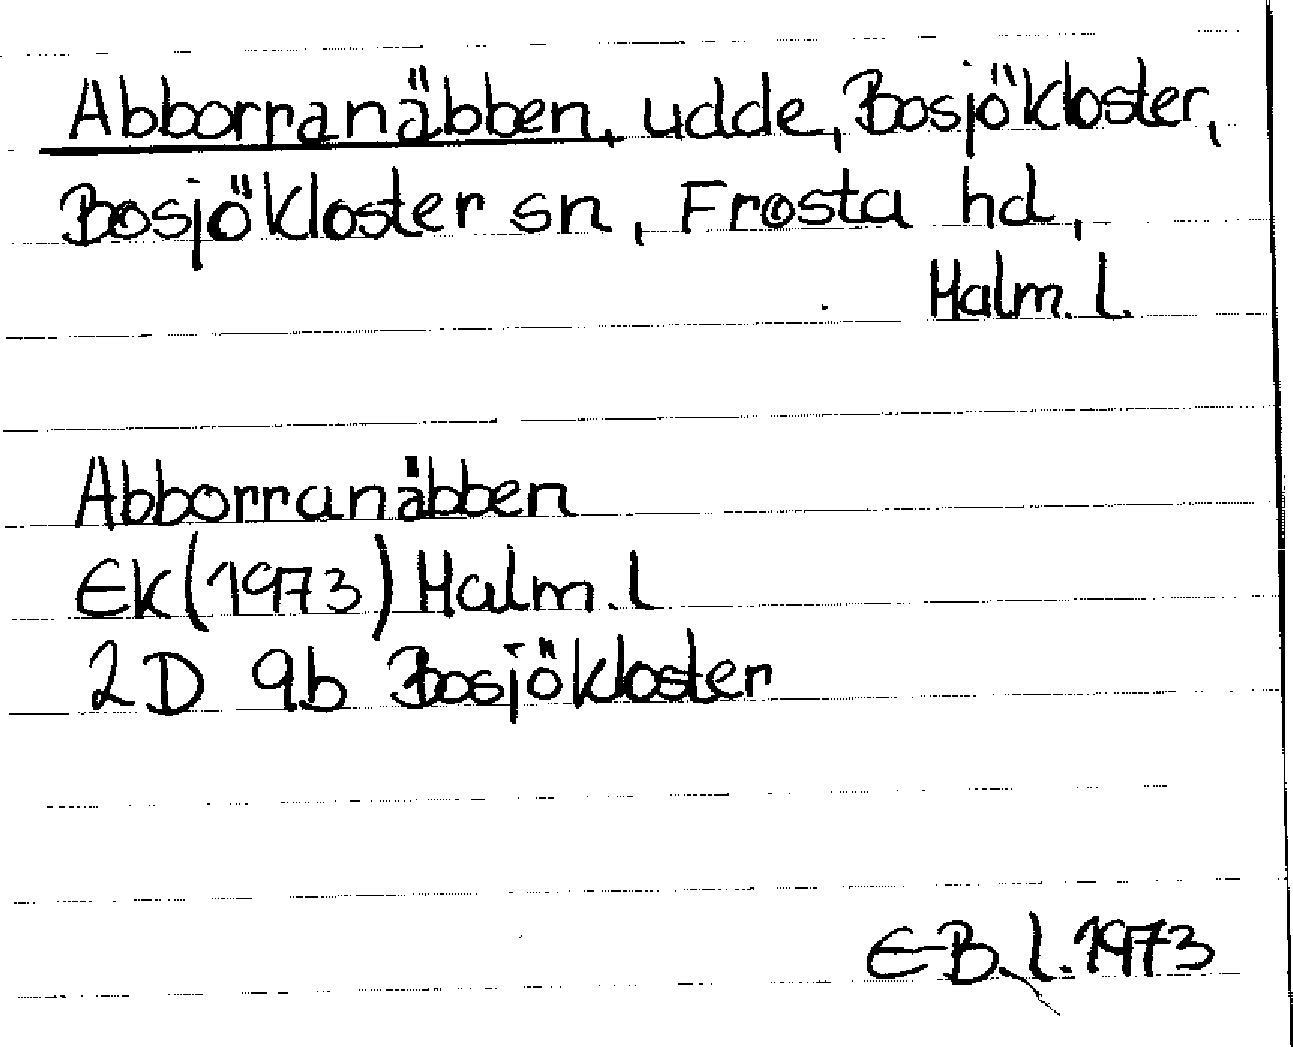 Abborranäbben, udde, Bosjökloster,
Bosjökloster sn, Frosta hd,
Malm. l.
Abborranäbben
Ek (1973) Malm. l
2D 9b Bosjökloster
E-B. l. 1973